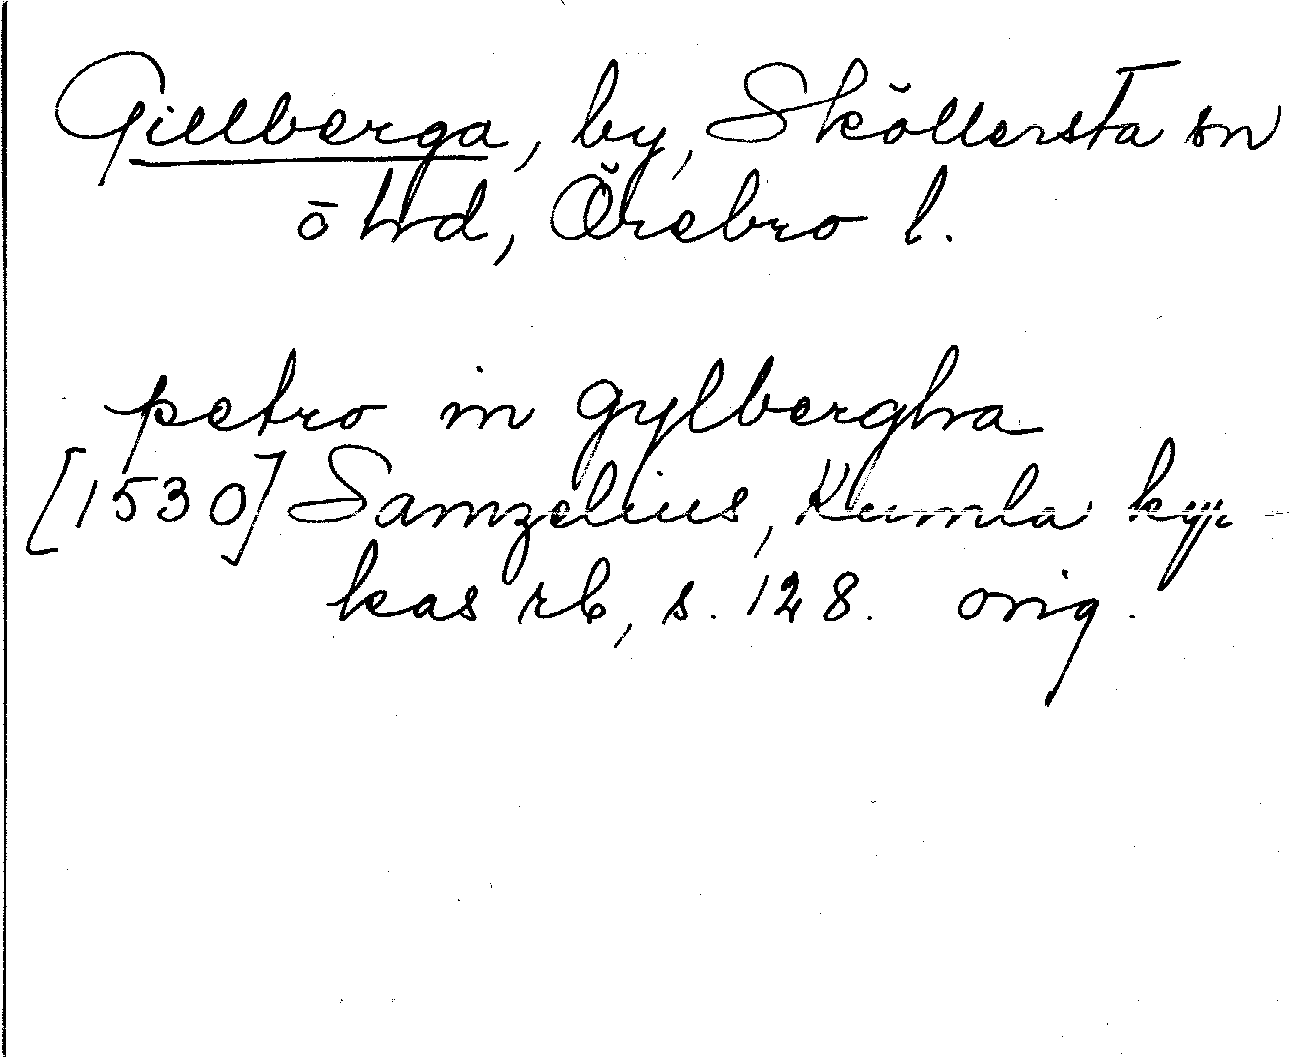 Gillberga, by, Sköllersta sn
o hd, Örebro l.
petro in gylbergha
[1530] Samzelius, Kumla kyr-
kas rb, s. 128. orig.